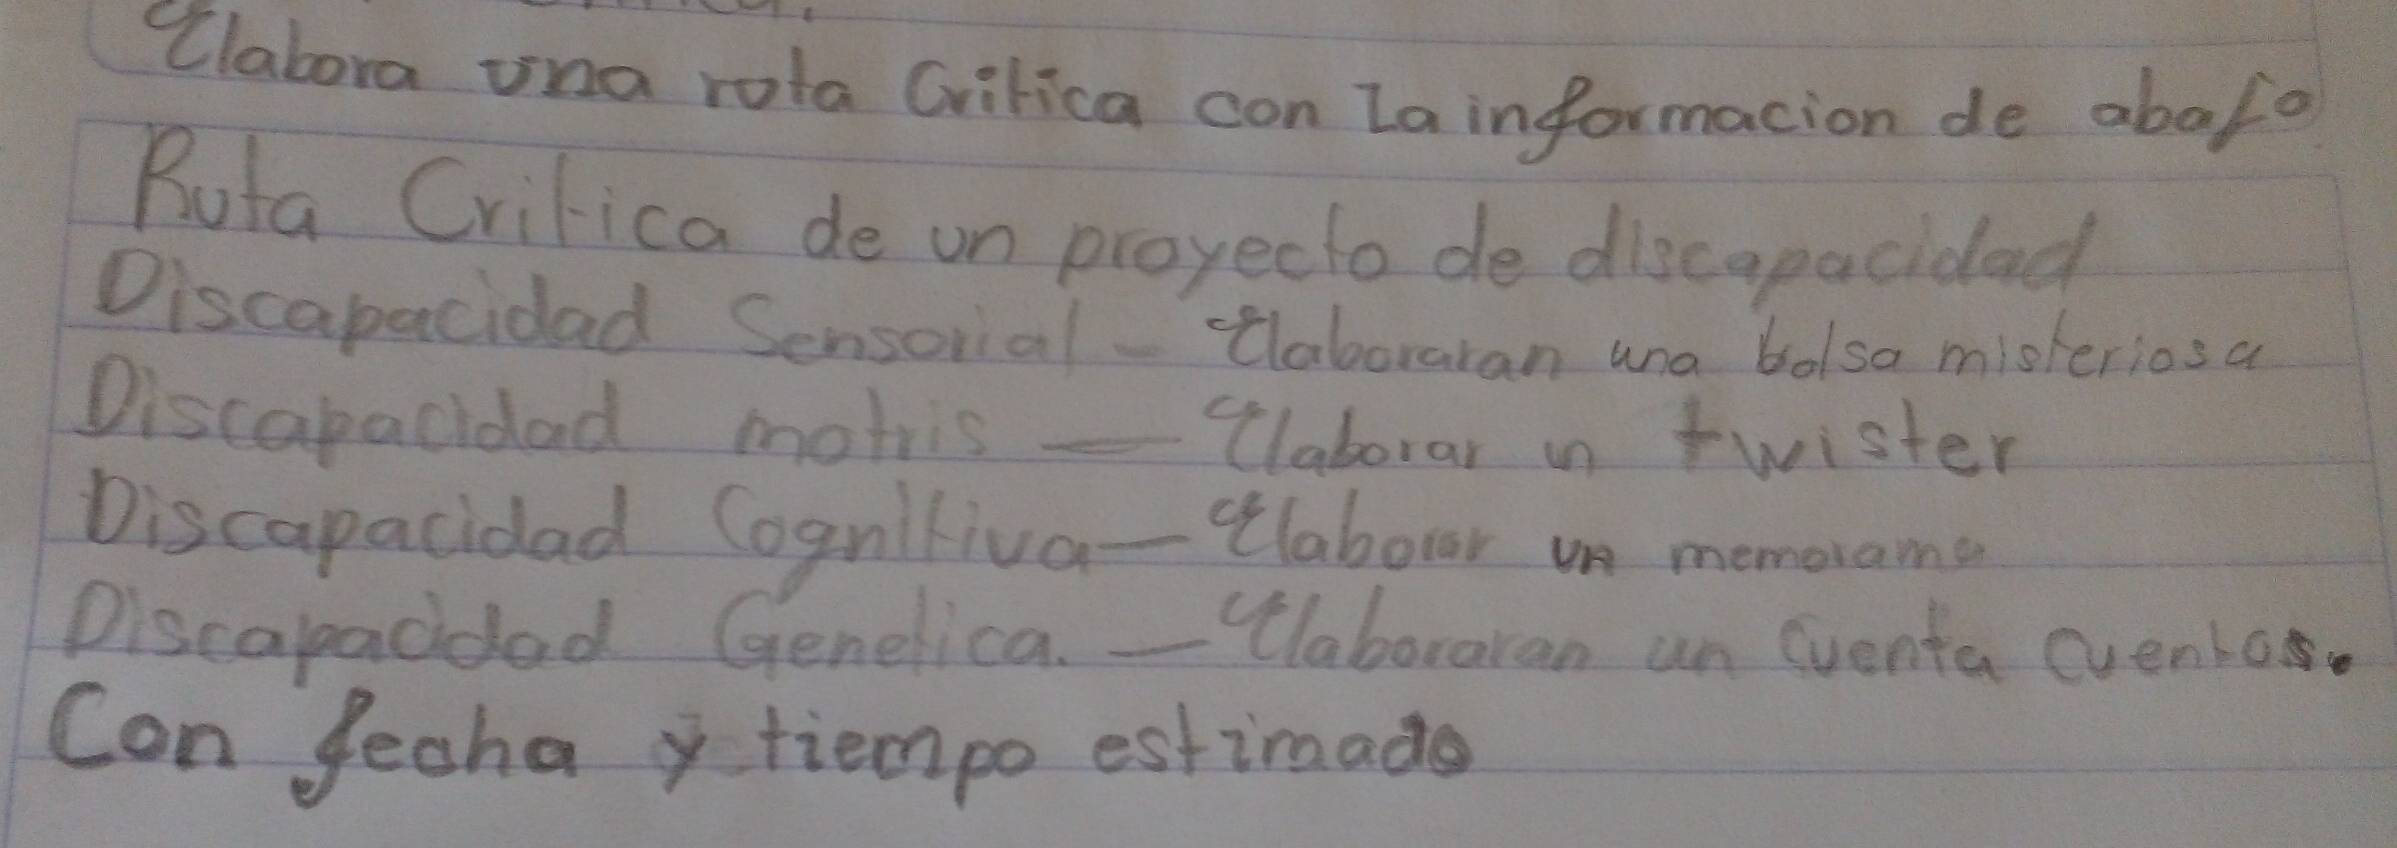 Elabora una rota Critica con la informacion de abajo
Ruta Critica de un proyecto de discapacidad
Discapacidad Sensorial - Elaboraran una bolsa misteriosa
Discapacidad motris - Elaborar un twister
Discapacidad Cognitiva - Elaborar un memorama
Discapacidad Genetica. - Elaboraran un Cuenta Cuentos.
Con fecha y tiempo estimado